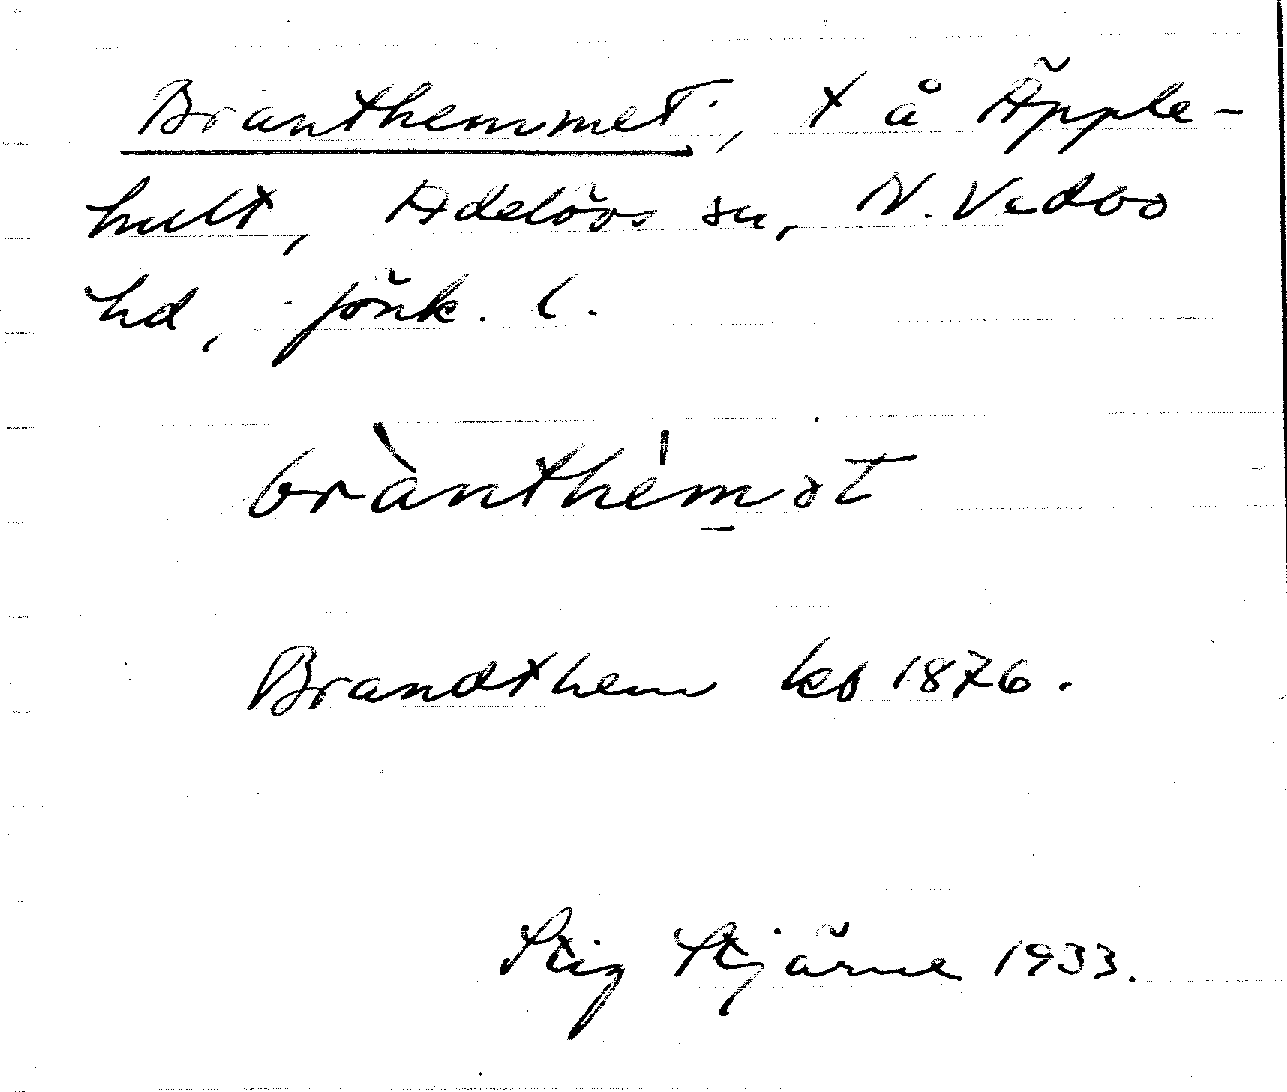 Branthemmet, t å Äpple-
hult, Adelövs sn, N. Vedbo
hd, Jönk. l.
brànthèmət
Brandthem kb 1876.
Stig Stjärne 1933.